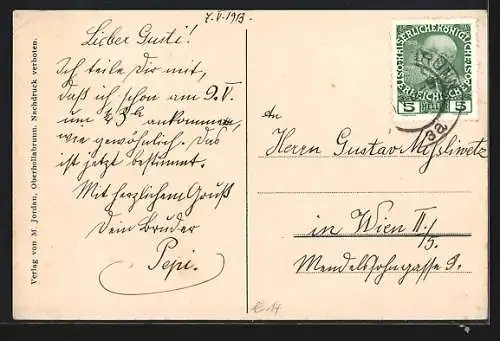 7.V.1913.
Lieber Gusti!
Ich teile Dir mit,
daß ich schon am 9.V.
um ½3h ankomme,
wie gewöhnlich. Das
ist jetzt bestimmt.
Mit herzlichem Gruß
Dein Bruder
Pepi.
Verlag von M. Jordan, Oberhollabrunn. Nachdruck verboten.
KAISERLICHE KÖNIGLICHE
ÖSTERREICHISCHE POST
5 HELLER 5
An
Herrn Gustav Missliwetz
in Wien II/5.
Mendelssohngasse 9.
€ 14